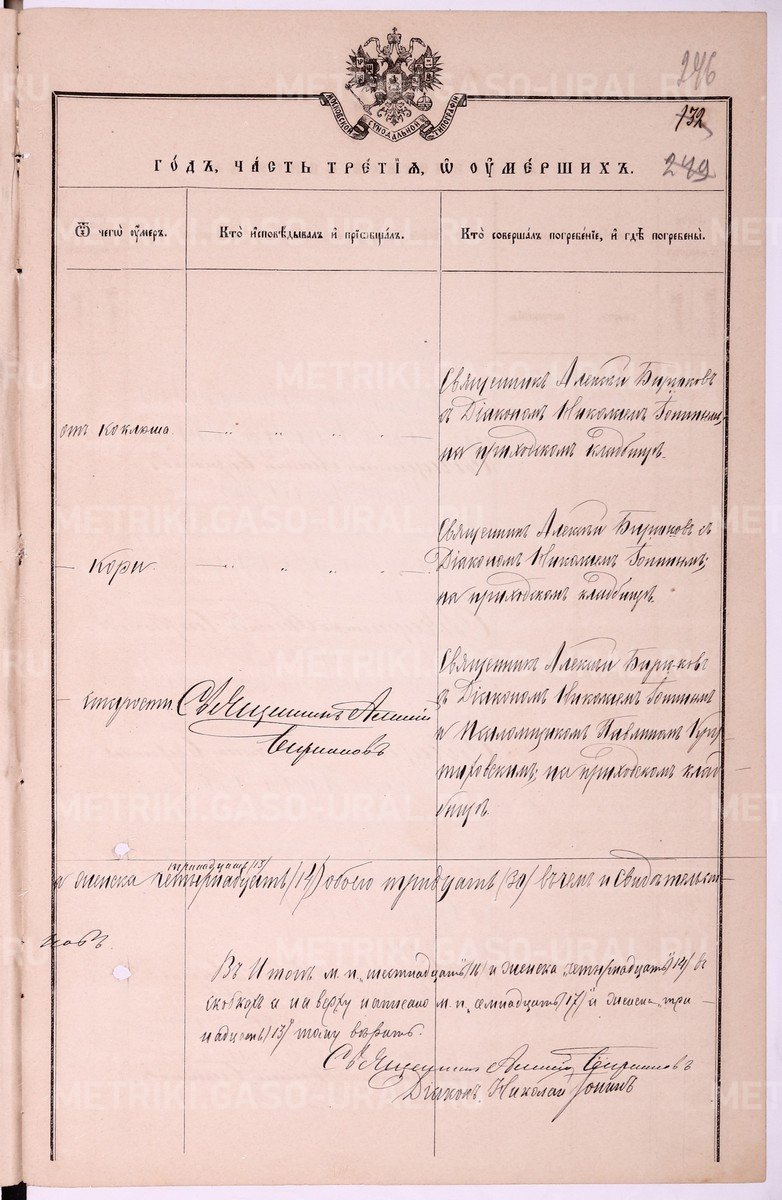 246
МОСКОВСКОЙ СѴНОДАЛЬНОЙ ТИПОГРАФІИ
132
249
ГО́ДЪ, ЧА́СТЬ ТРЕ́ТІѦ, Ѡ҆ ОУ҆МЕ́РШИХЪ.
Ѿ чегѡ̀ оу҆́меръ.
Кто̀ и҆сповѣ́дывалъ и҆ прїѡбща́лъ.
Кто̀ соверша́лъ погребе́нїе, и҆ гдѣ̀ погребены̀.
отъ коклюша.
— „ „ „ „ —
Священникъ Алексѣй Бирюковъ
съ Діакономъ Николаемъ Іонинымъ,
на приходскомъ кладбищѣ.
— Кори
— „ „ „ „ —
Священникъ Алексѣй Бирюковъ съ
Діакономъ Николаемъ Іонинымъ;
на приходскомъ кладбищѣ.
— старости
Священникъ Алексій
Бирюковъ
Священникъ Алексѣй Бирюковъ
съ Діакономъ Николаемъ Іонинымъ
и Псаломщикомъ Павлиномъ
на приходскомъ клад
бищѣ.
тринадцать /13/
а женска четырнадцать /14/ обоего тридцать /30/ въ чемъ и свидѣтельст
METRIKI.GASO-URAL.RU
Въ Итогѣ м. п. „шестнадцать" /16/ и женска „четырнадцать" /14/ въ
скобкахъ а на верху написано м. п. „семнадцать" /17/ и женска „три
надцать /13/" тому вѣрить.
Священникъ Алексій Бирюковъ
Діаконъ Николай Іонинъ